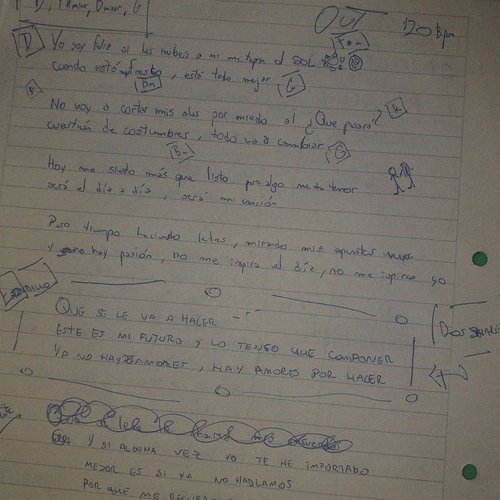 OUT
120 Bpm
D
Yo soy feliz si las nubes a mi me tapan el SOL
cuando está, está todo mejor
Bm
G
No voy a cortar mis alas por miedo al ¿Que pasará?
cuestión de costumbres, todo va a cambiar
Bm
G
Hoy me siento más que listo pro algo me da temor
será el día a día, será mi canción
Paso tiempo haciendo letras, mirando mis apuntes
Y no hay pasión, no me inspira el día, no me inspiro yo
ESTRIBILLO
QUE SE LE VA A HACER
ESTE ES MI FUTURO Y LO TENGO QUE COMPONER
YA NO HAY AMORES, HAY AMORES POR HACER
Y SI ALGUNA VEZ YO TE HE IMPORTADO
MEJOR ES SI YA NO HABLAMOS
POR QUÉ ME